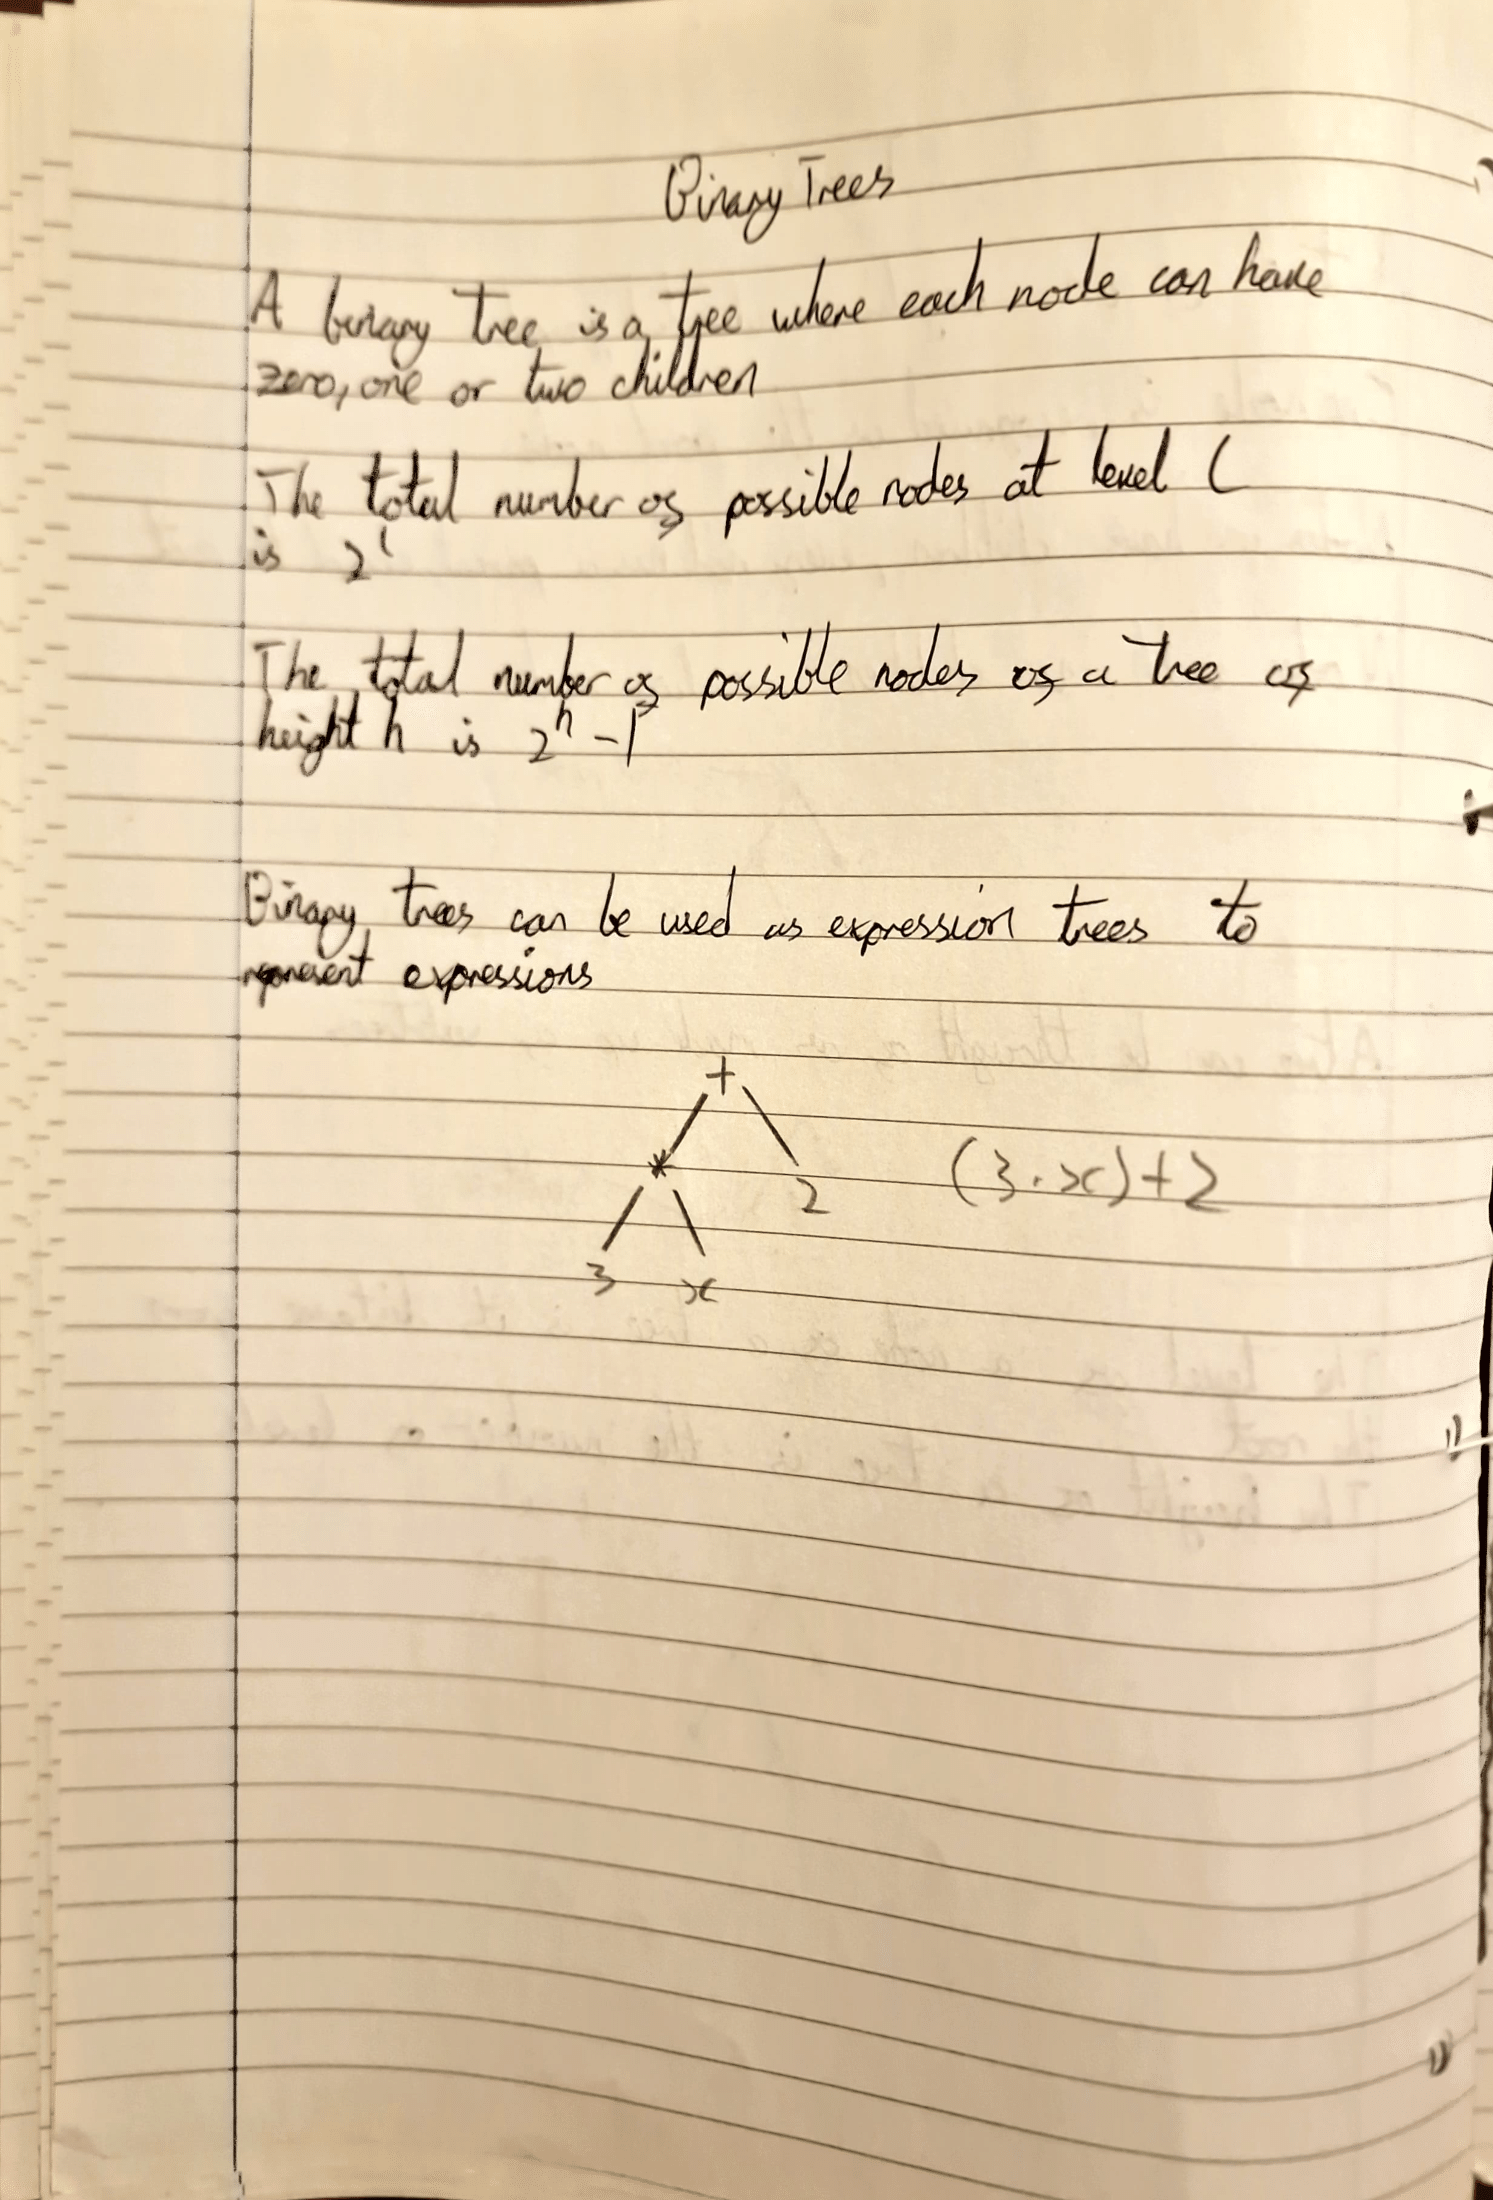 Binary Trees
A binary tree is a tree where each node can have
zero, one or two children
The total number of possible nodes at level l
is 2^l
The total number of possible nodes of a tree of
height h is 2^h - 1
Binary trees can be used as expression trees to
represent expressions
+
* 2 (3·x)+2
3 x